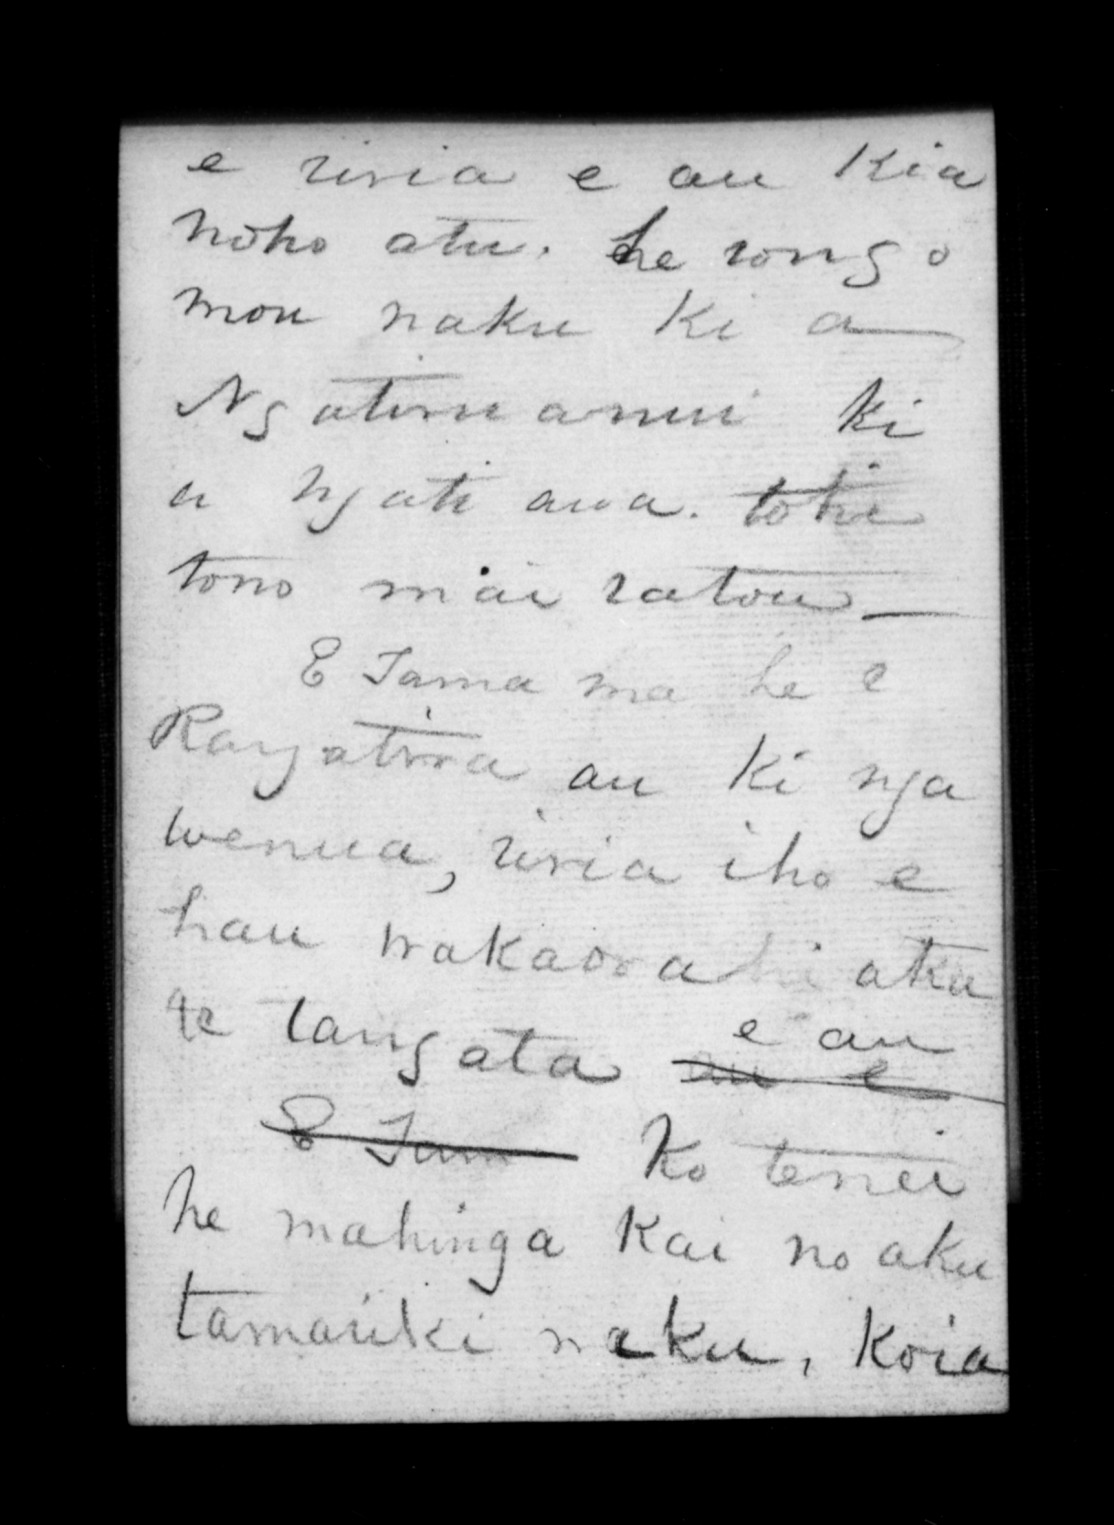 e riria e au Kia
noho atu. he rongo
mou naku Ki a
Ngatiruanui ki
a Ngati awa. tohe
tono mai ratou —
E Tama ma he
Rangatira au Ki nga
wenua, riria iho e
hau wakaora aku
tangata e au
au e
E Tam Ko tenei
he mahinga Kai no aku
tamariki naku, Koia